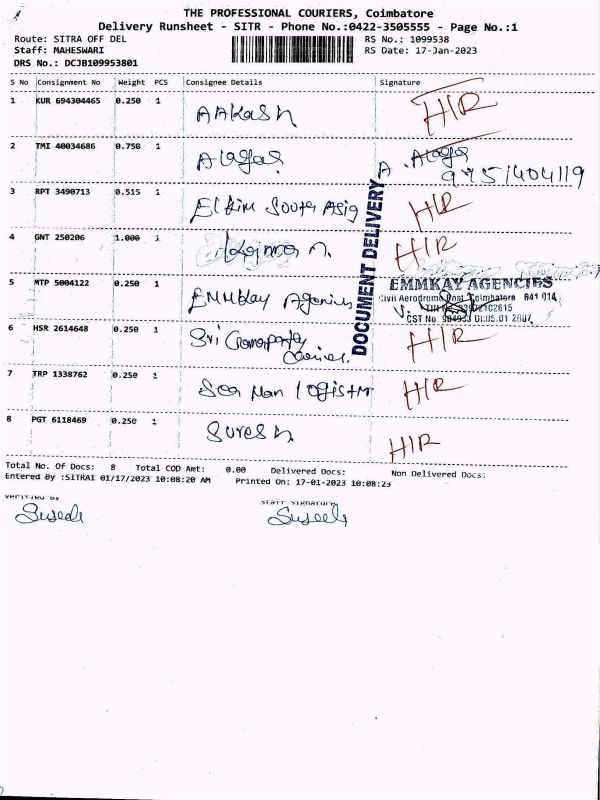 THE PROFESSIONAL COURIERS, Coimbatore
Delivery Runsheet - SITR - Phone No.:0422-3505555 - Page No.:1
Route: SITRA OFF DEL RS No.: 1099538
Staff: MAHESWARI RS Date: 17-Jan-2023
DRS No.: DCJB109953801
S No Consignment No Weight PCS Consignee Details Signature
1 KUR 694304465 0.250 1 AAKash HIR
2 TMI 40034686 0.750 1 Alagar A. Alagar
9751404119
3 RPT 3490713 0.515 1 South Asia HIR
4 GNT 250206 1.000 1 HIR
5 MTP 5004122 0.250 1 EMMKay Agencies EMMKAY AGENCIES
Civil Aerodrome Post, Coimbatore 641 014
CST No.
6 HSR 2614648 0.250 1 Sri HIR
7 TRP 1338762 0.250 1 Sea Man logistic HIR
8 PGT 6118469 0.250 1 Suresh HIR
DOCUMENT DELIVERY
Total No. Of Docs: 8 Total COD Amt: 0.00 Delivered Docs: Non Delivered Docs:
Entered By :SITRAI 01/17/2023 10:08:20 AM Printed On: 17-01-2023 10:08:23
Verified By Staff Signature